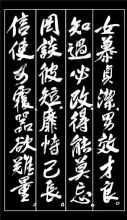 女慕貞潔男效才良
知過必改得能莫忘
罔談彼短靡恃己長
信使可覆器欲難量